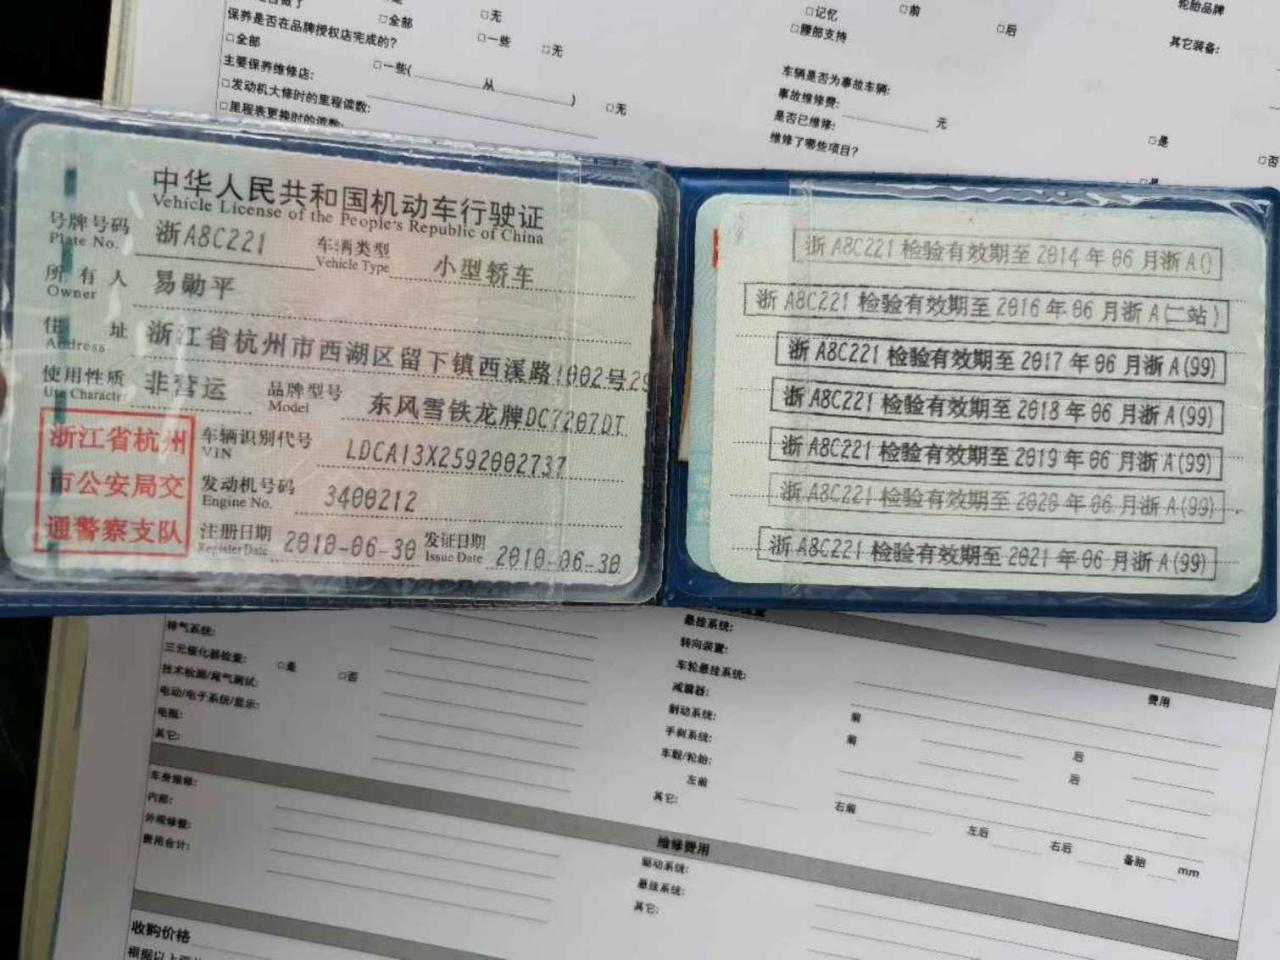 □全部
□无
保养是否在品牌授权店完成的?
□全部
□一些
□无
主要保养维修店:
□一些(
从
)
□无
□发动机大修时的里程读数:
□里程表更换时的读数:
□记忆
□前
□后
□腰部支持
轮胎品牌
其它装备:
车辆是否为事故车辆:
事故维修费:
元
是否已维修:
□是
□否
维修了哪些项目?
□是
中华人民共和国机动车行驶证
Vehicle License of the People's Republic of China
号牌号码 浙A8C221 车辆类型 小型轿车
Plate No. Vehicle Type
所有人 易勋平
Owner
住址 浙江省杭州市西湖区留下镇西溪路1002号29
Address
使用性质 非营运 品牌型号 东风雪铁龙牌DC7207DT
Use Character Model
浙江省杭州
市公安局交
通警察支队
车辆识别代号 LDCA13X2592002737
VIN
发动机号码 3400212
Engine No.
注册日期 2010-06-30 发证日期 2010-06-30
Register Date Issue Date
浙A8C221 检验有效期至 2014年 06 月浙A()
浙A8C221 检验有效期至 2016年 06 月浙A(二站)
浙A8C221 检验有效期至 2017年 06 月浙A(99)
浙A8C221 检验有效期至 2018年 06 月浙A(99)
浙A8C221 检验有效期至 2019年 06 月浙A(99)
浙A8C221 检验有效期至 2020年 06 月浙A(99)
浙A8C221 检验有效期至 2021年 06 月浙A(99)
排气系统:
三元催化器检查: □是 □否
技术检测/尾气测试:
电动/电子系统/显示:
电瓶:
其它:
悬挂系统:
转向装置:
车轮悬挂系统:
减震器:
制动系统: 前 后
手刹系统: 前 后
车毂/轮胎:
左前 右前 左后 右后 备胎 mm
其它:
费用
车身维修:
内部:
外观修整:
费用合计:
维修费用
驱动系统:
悬挂系统:
其它:
收购价格